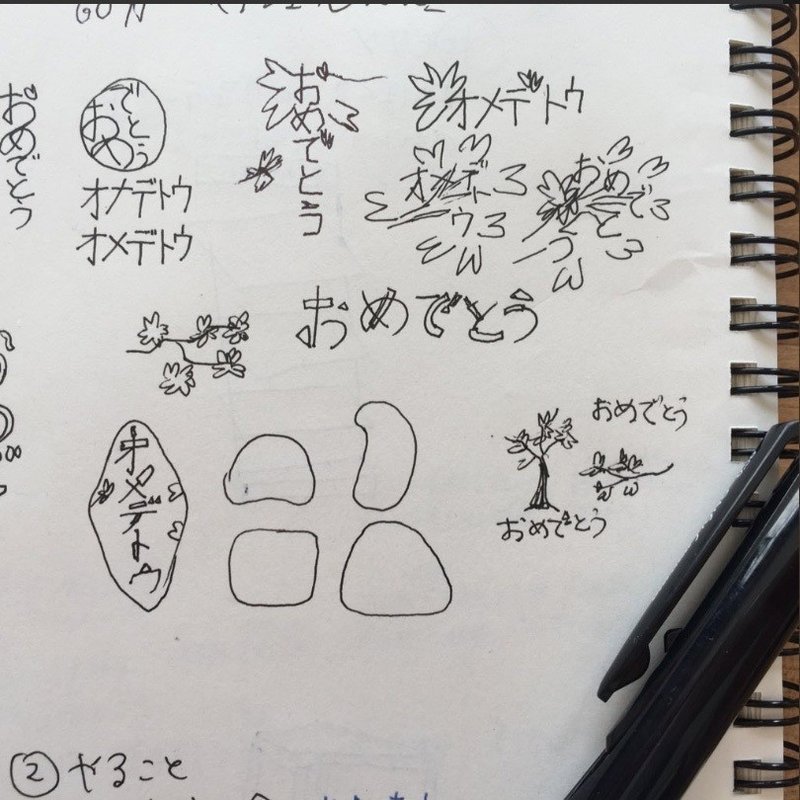 おめでとう
おめでとう
オナデトウ
オメデトウ
おめでとう
オメデトウ
オメデトウ
おめでとう
おめでとう
オメデトウ
おめでとう
おめでとう
② やること